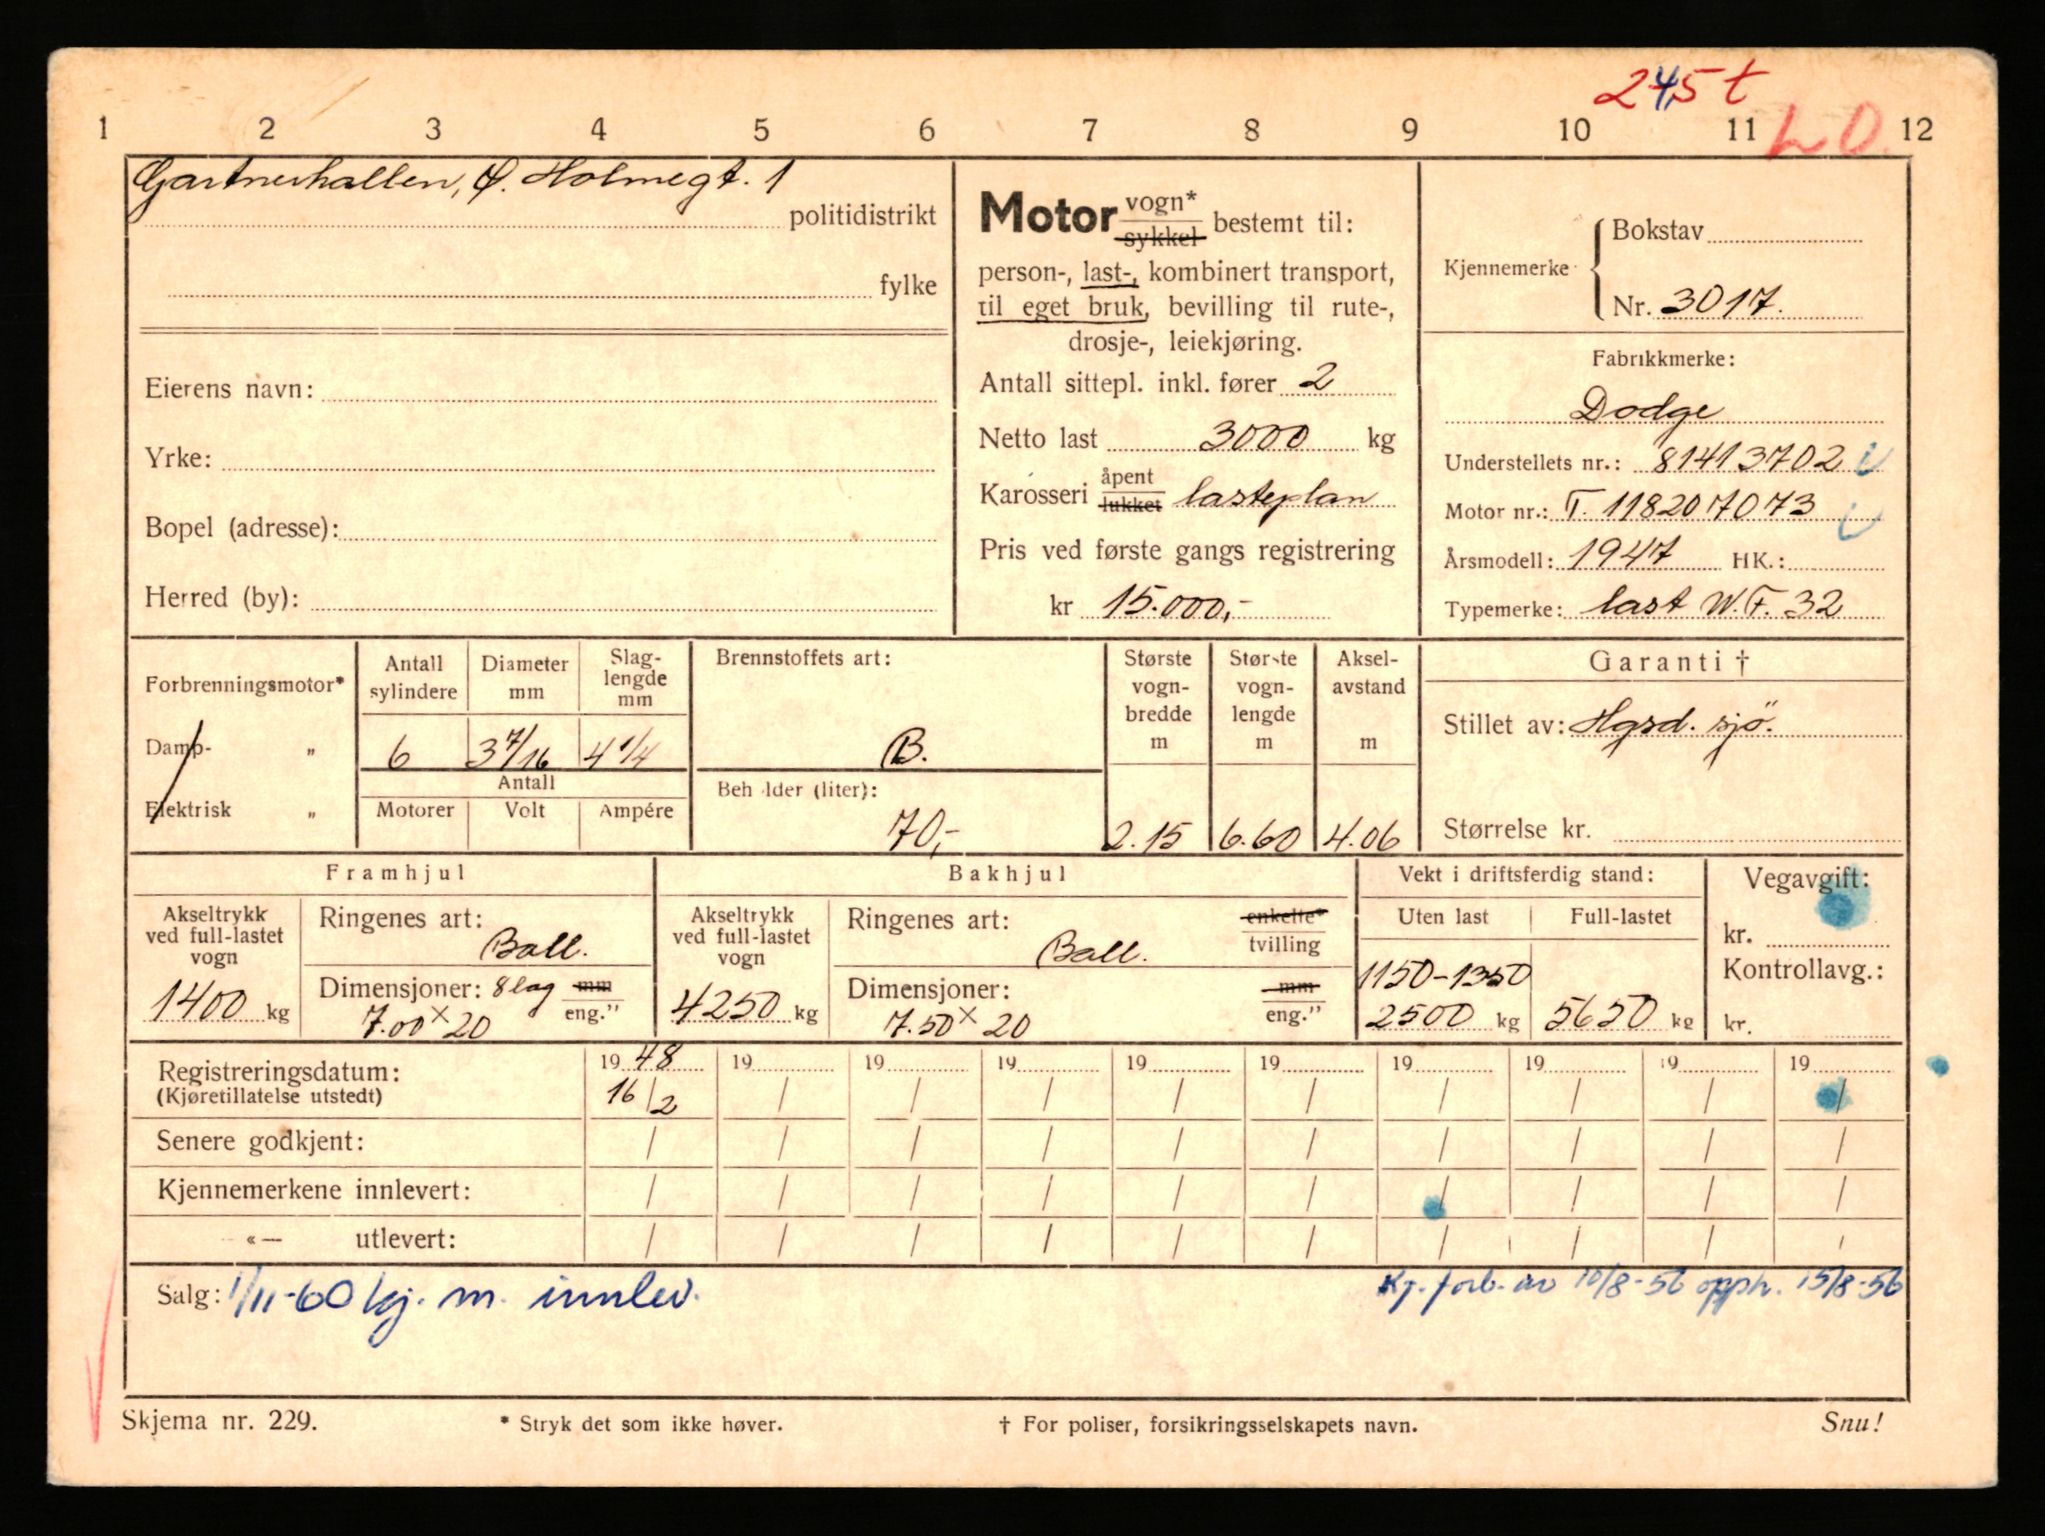 245 t
1 2 3 4 5 6 7 8 9 10 11 12
L O.
Gartnerhallen, Ø. Holmegt. 1
politidistrikt
fylke
Eierens navn:
Yrke:
Bopel (adresse):
Herred (by):
Motor vogn* sykkel bestemt til:
person-, last-, kombinert transport,
til eget bruk, bevilling til rute-,
drosje-, leiekjøring.
Antall sittepl. inkl. fører 2
Netto last 3000 kg
Karosseri åpent lukket lasteplan
Pris ved første gangs registrering
kr 15.000,-
Kjennemerke
Bokstav
Nr. 3017.
Fabrikkmerke:
Dodge
Understellets nr.: 81413702
Motor nr.: T. 118207073
Årsmodell: 1947 HK.:
Typemerke: last W.F. 32
Forbrenningsmotor*
Damp- „
Elektrisk „
Antall sylindere
Diameter mm
Slag-lengde mm
6 3 7/16 4 1/4
Antall
Motorer Volt Ampére
Brennstoffets art:
B.
Beh lder (liter):
70,-
Største vogn-bredde m
2.15
Største vogn-lengde m
6.60
Aksel-avstand m
4.06
Garanti †
Stillet av: Hgsd. sjö.
Størrelse kr.
Framhjul
Akseltrykk ved full-lastet vogn
1400 kg
Ringenes art:
Ball.
Dimensjoner: 8 lag mm eng.”
7.00 x 20
Bakhjul
Akseltrykk ved full-lastet vogn
4250 kg
Ringenes art: enkelte* tvilling
Ball.
Dimensjoner: mm eng.”
7.50 x 20
Vekt i driftsferdig stand:
Uten last Full-lastet
1150-1350
2500 kg 5650 kg
Vegavgift:
kr.
Kontrollavg.:
kr.
Registreringsdatum: 19 48 19 19 19 19 19 19 19 19 19
(Kjøretillatelse utstedt) 16/2 / / / / / / / / /
Senere godkjent: / / / / / / / / / /
Kjennemerkene innlevert: / / / / / / / / / /
«— utlevert: / / / / / / / / / /
Salg: 1/11-60 kj. m. innlev.
Kj. forb. av 10/8-56 opph. 15/8-56
Skjema nr. 229.
* Stryk det som ikke høver.
† For poliser, forsikringsselskapets navn.
Snu!